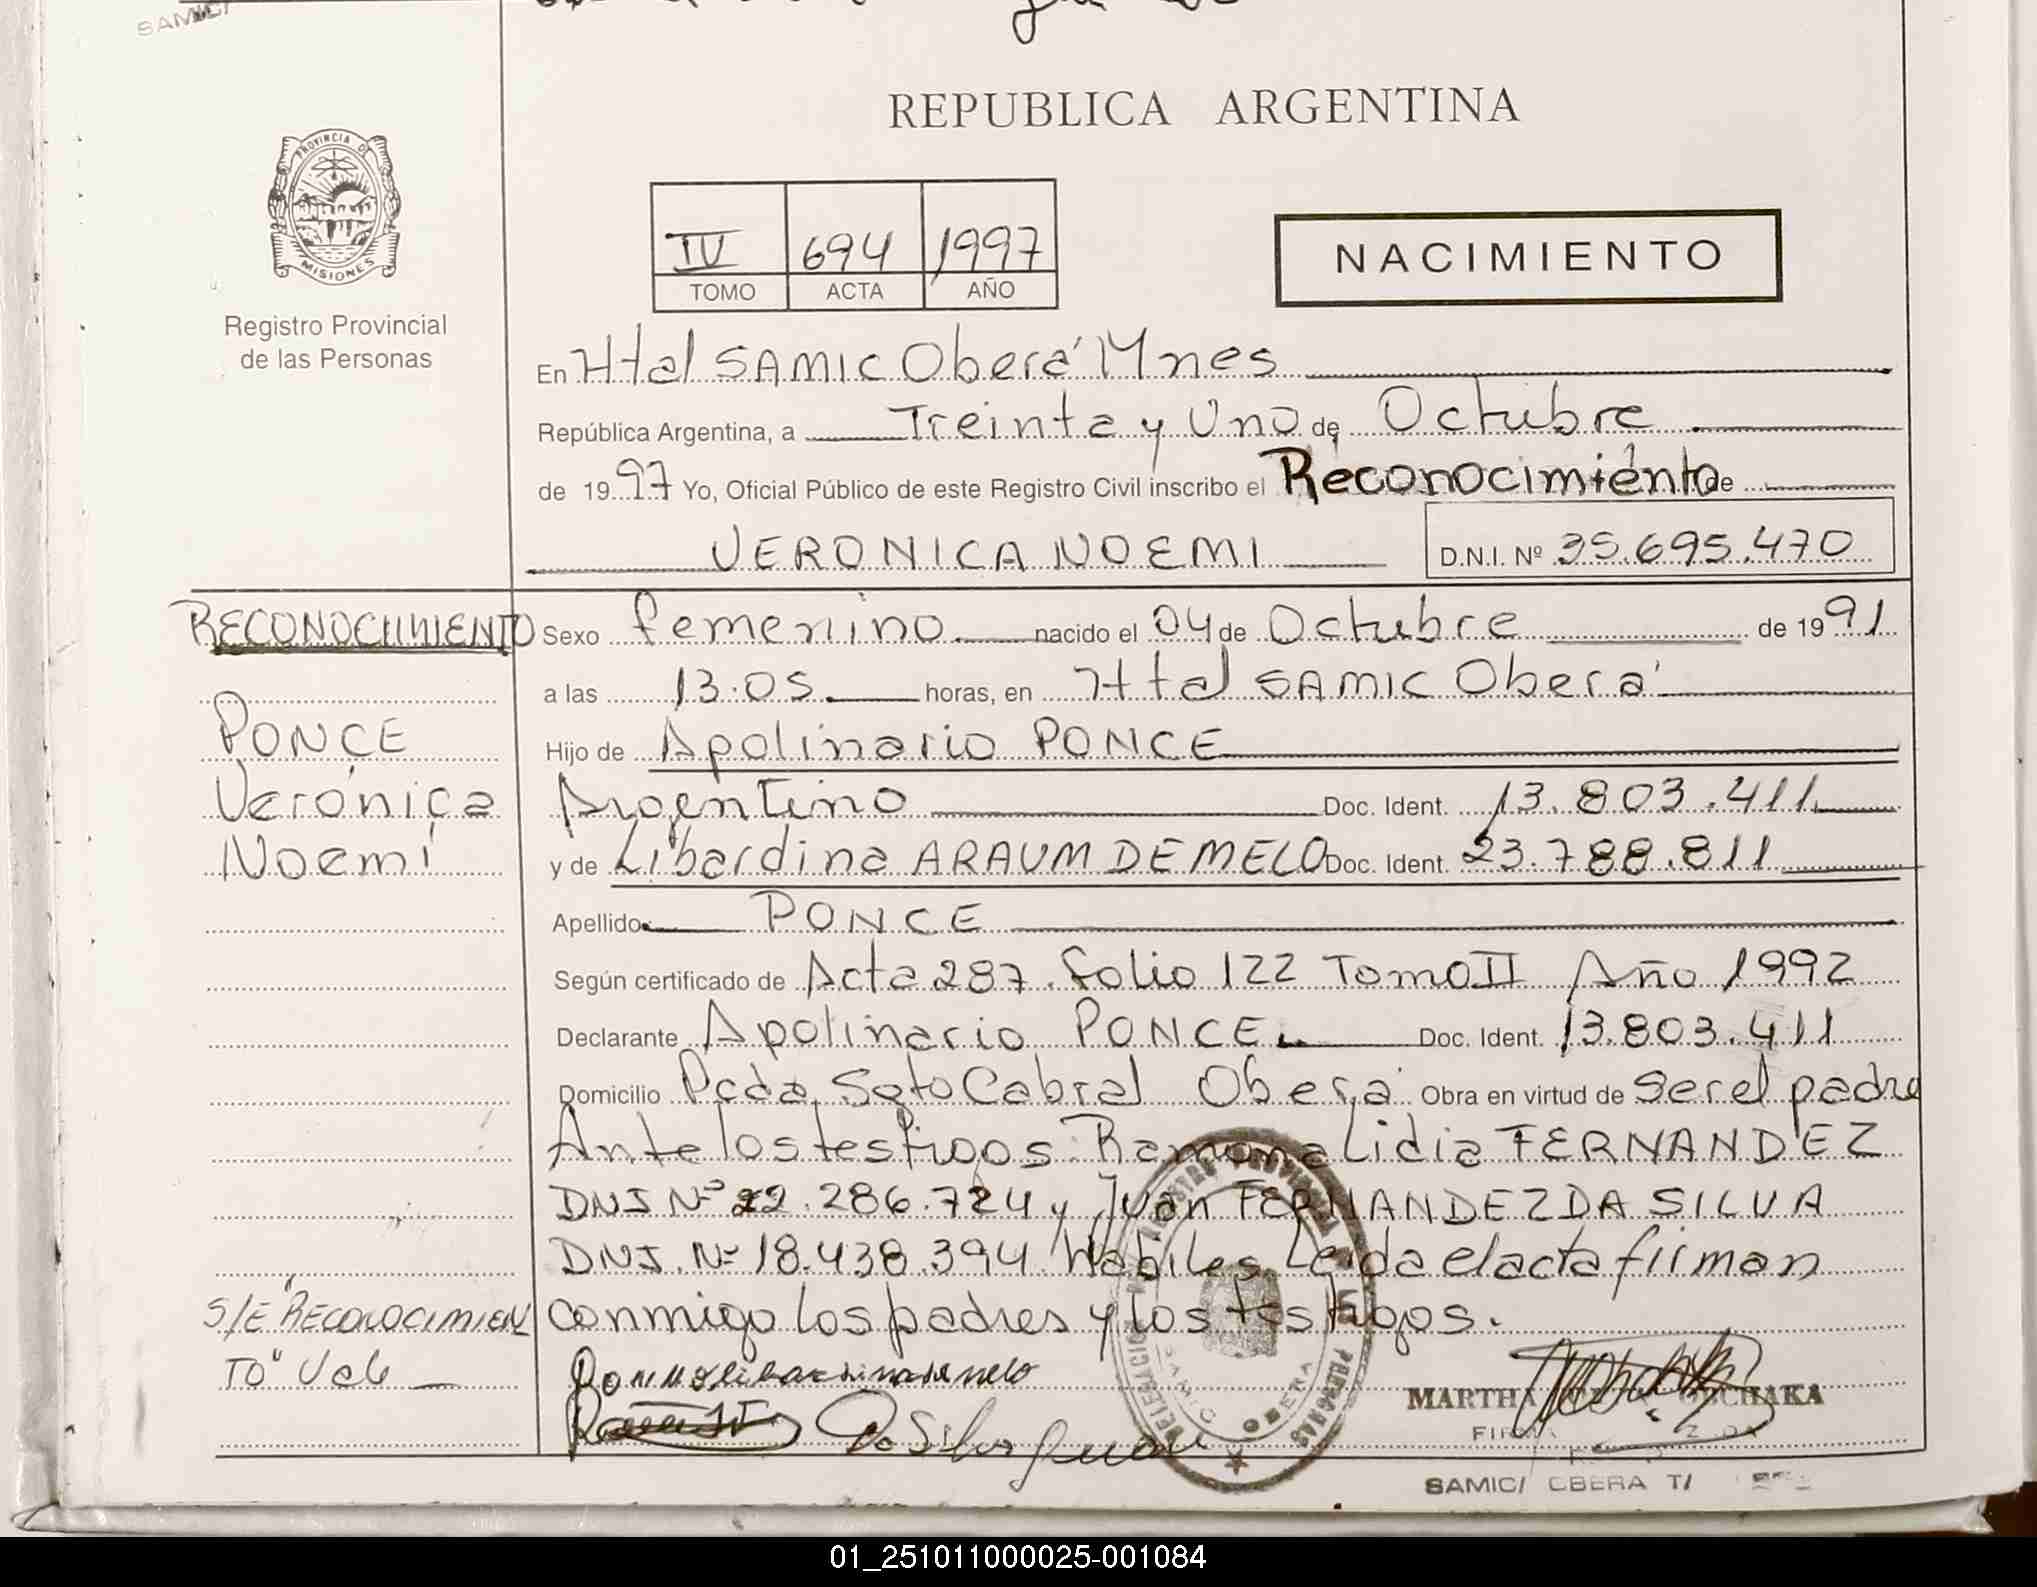 SAMIC/
REPUBLICA ARGENTINA
PROVINCIA DE
MISIONES
Registro Provincial
de las Personas
IV 694 1997
TOMO ACTA AÑO
NACIMIENTO
En Htal SAMIC Oberá Mnes
República Argentina, a Treinta y Uno de Octubre
de 1997 Yo, Oficial Público de este Registro Civil inscribo el Reconocimiento de
VERONICA NOEMI D.N.I. Nº 35.695.470
RECONOCIMIENTO
PONCE
Verónica
Noemí
S/E "RECONOCIMIEN
TO" Vale
Sexo femenino nacido el 04 de Octubre de 1991
a las 13.05 horas, en Htal SAMIC Oberá
Hijo de Apolinario PONCE
Argentino Doc. Ident. 13.803.411
y de Libardina ARAUM DE MELO Doc. Ident. 23.788.811
Apellido PONCE
Según certificado de Acta 287 folio 122 Tomo II Año 1992
Declarante Apolinario PONCE Doc. Ident. 13.803.411
Domicilio Pcda Sgto Cabral Oberá Obra en virtud de ser el padre
Ante los testigos: Ramona Lidia FERNANDEZ
DNI Nº 22.286.724 y Juan FERNANDEZ DA SILVA
DNI. Nº 18.438.394 Habiles Leida el acta firman
conmigo los padres y los testigos.
Da Silva Juan
MARTHA
SAMIC OBERA
SAMIC/ OBERA T/
01_251011000025-001084